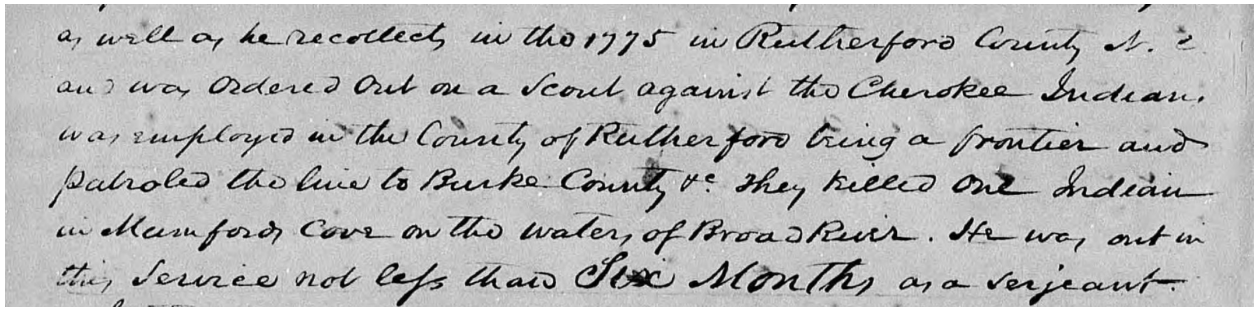 as well as he recollects in the 1775 in Rutherford County N. C
and was ordered out on a Scout against the Cherokee Indians
was employed in the County of Rutherford being a frontier and
patroled the line to Burke County &c. They killed one Indian
in Mumfords Cove on the waters of Broad River. He was out in
this Service not less than Six Months as a serjeant.